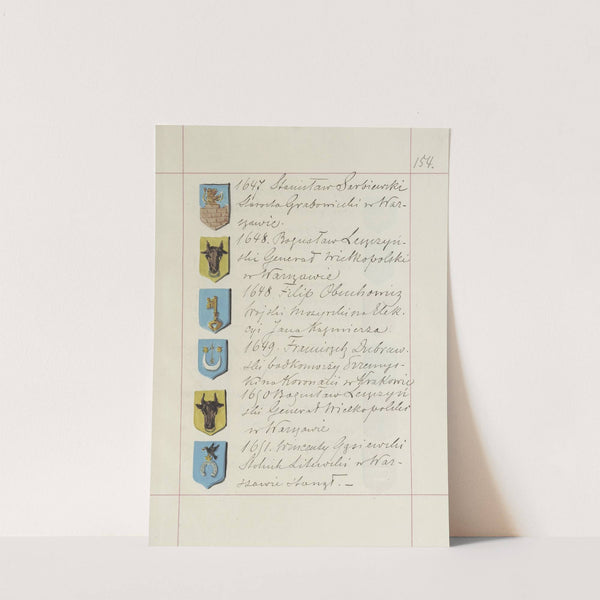 154.
1647. Stanisław Sarbiewski
Starosta Grabowiecki w War-
szawie.
1648. Bogusław Leszczyń-
ski Generał Wielkopolski
w Warszawie
1648 Filip Obuchowicz
Wojski Mozyrski na Elek-
cyi Jana Kazimierza.
1649. Franciszek Dubraw-
ski podkomorzy Przemys-
ki na Koronacii w Krakowie
1650 Bogusław Leszczyń-
ski Generał Wielkopolski
w Warszawie
1651. Wincenty Gąsiewski
Stolnik Litewski w War-
szawie